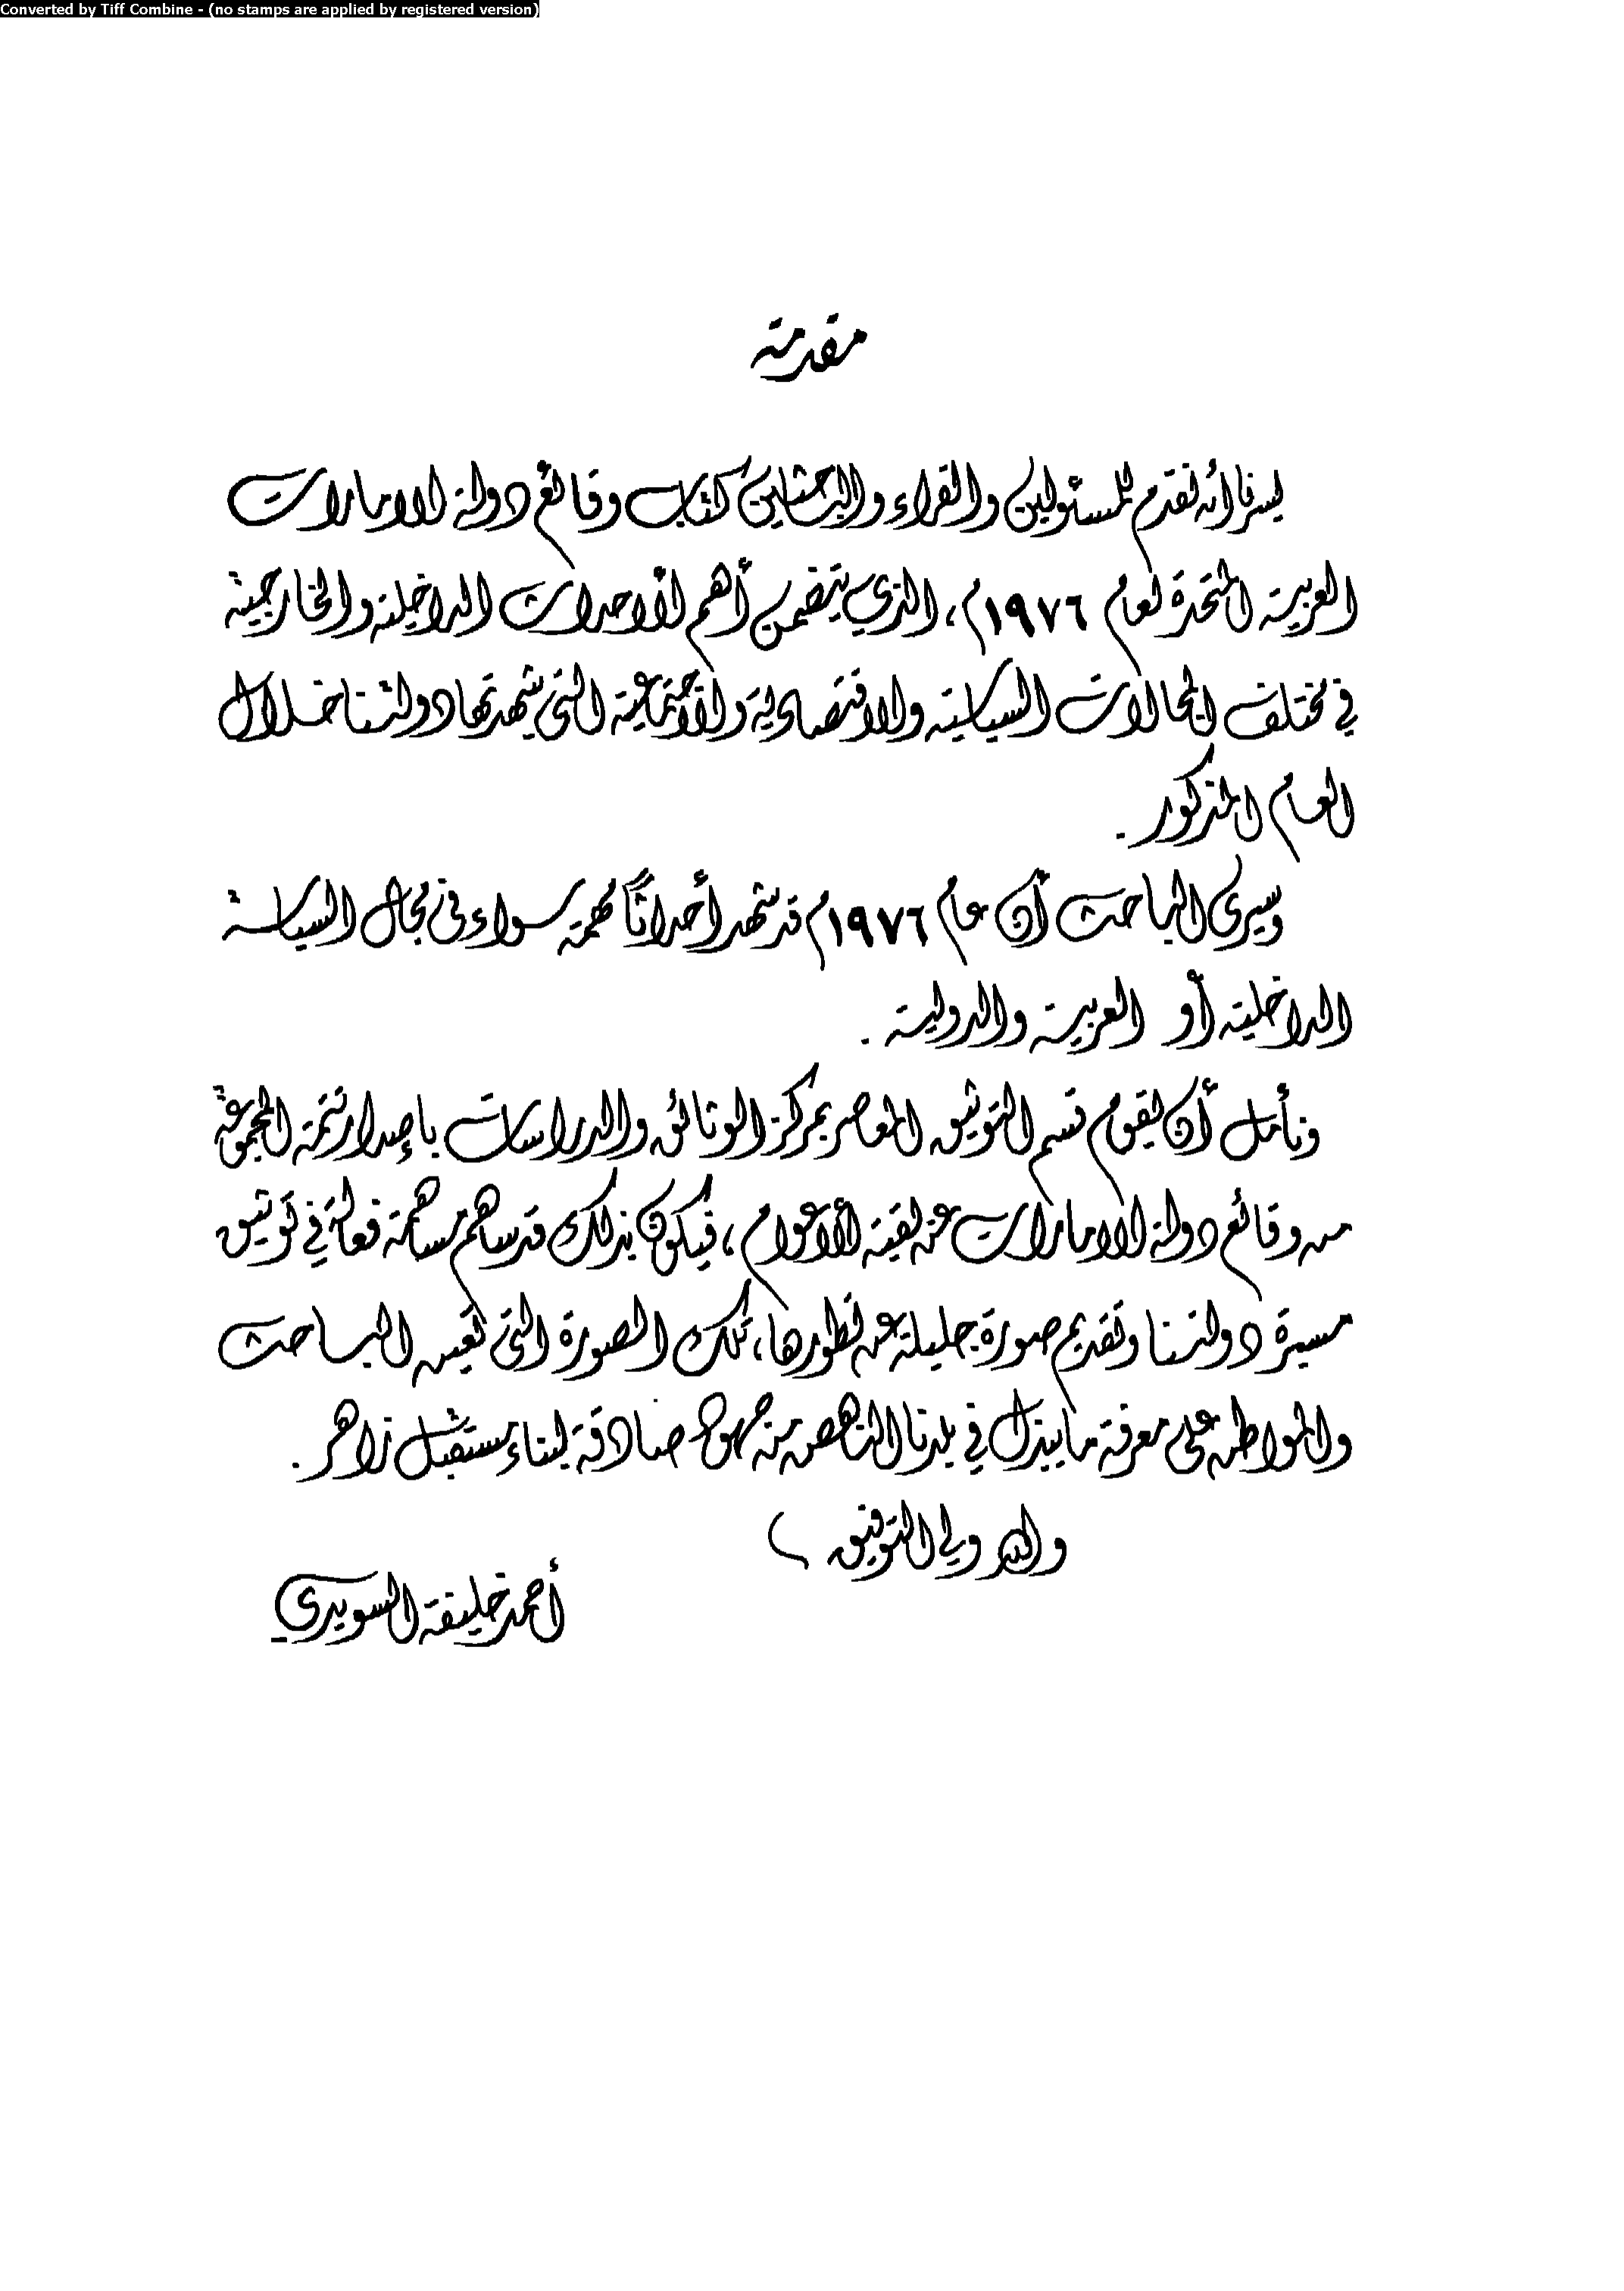 Converted by Tiff Combine - (no stamps are applied by registered version)
مقدمة
يسرنا أن نقدم للمسئولين والقراء والباحثين كتاب وقائع دولة الامارات
العربية المتحدة لعام ١٩٧٦م ، الذي يتضمن أهم الأحداث الداخلية والخارجية
في مختلف المجالات السياسية والاقتصادية والاجتماعية التي شهدتها دولتنا خلال
العام المذكور .
وسيرى الباحث أن عام ١٩٧٦م قد شهد أحداثاً مهمة سواء في مجال السياسة
الداخلية أو العربية والدولية .
ونأمل أن يقوم قسم التوثيق المعاصر بمركز الوثائق والدراسات بإصدار تتمة المجموعة
من وقائع دولة الامارات عن بقية الأعوام ، فيكون بذلك قد ساهم مساهمة فعالة في توثيق
مسيرة دولتنا وتقديم صورة جليلة عن تطورها ، تلك الصورة التي تعين الباحث
والمواطن على معرفة ما يبذل في بلدنا الناهض من جهود صادقة لبناء مستقبل زاهر .
والله ولي التوفيق
أحمد خليفة السويدي